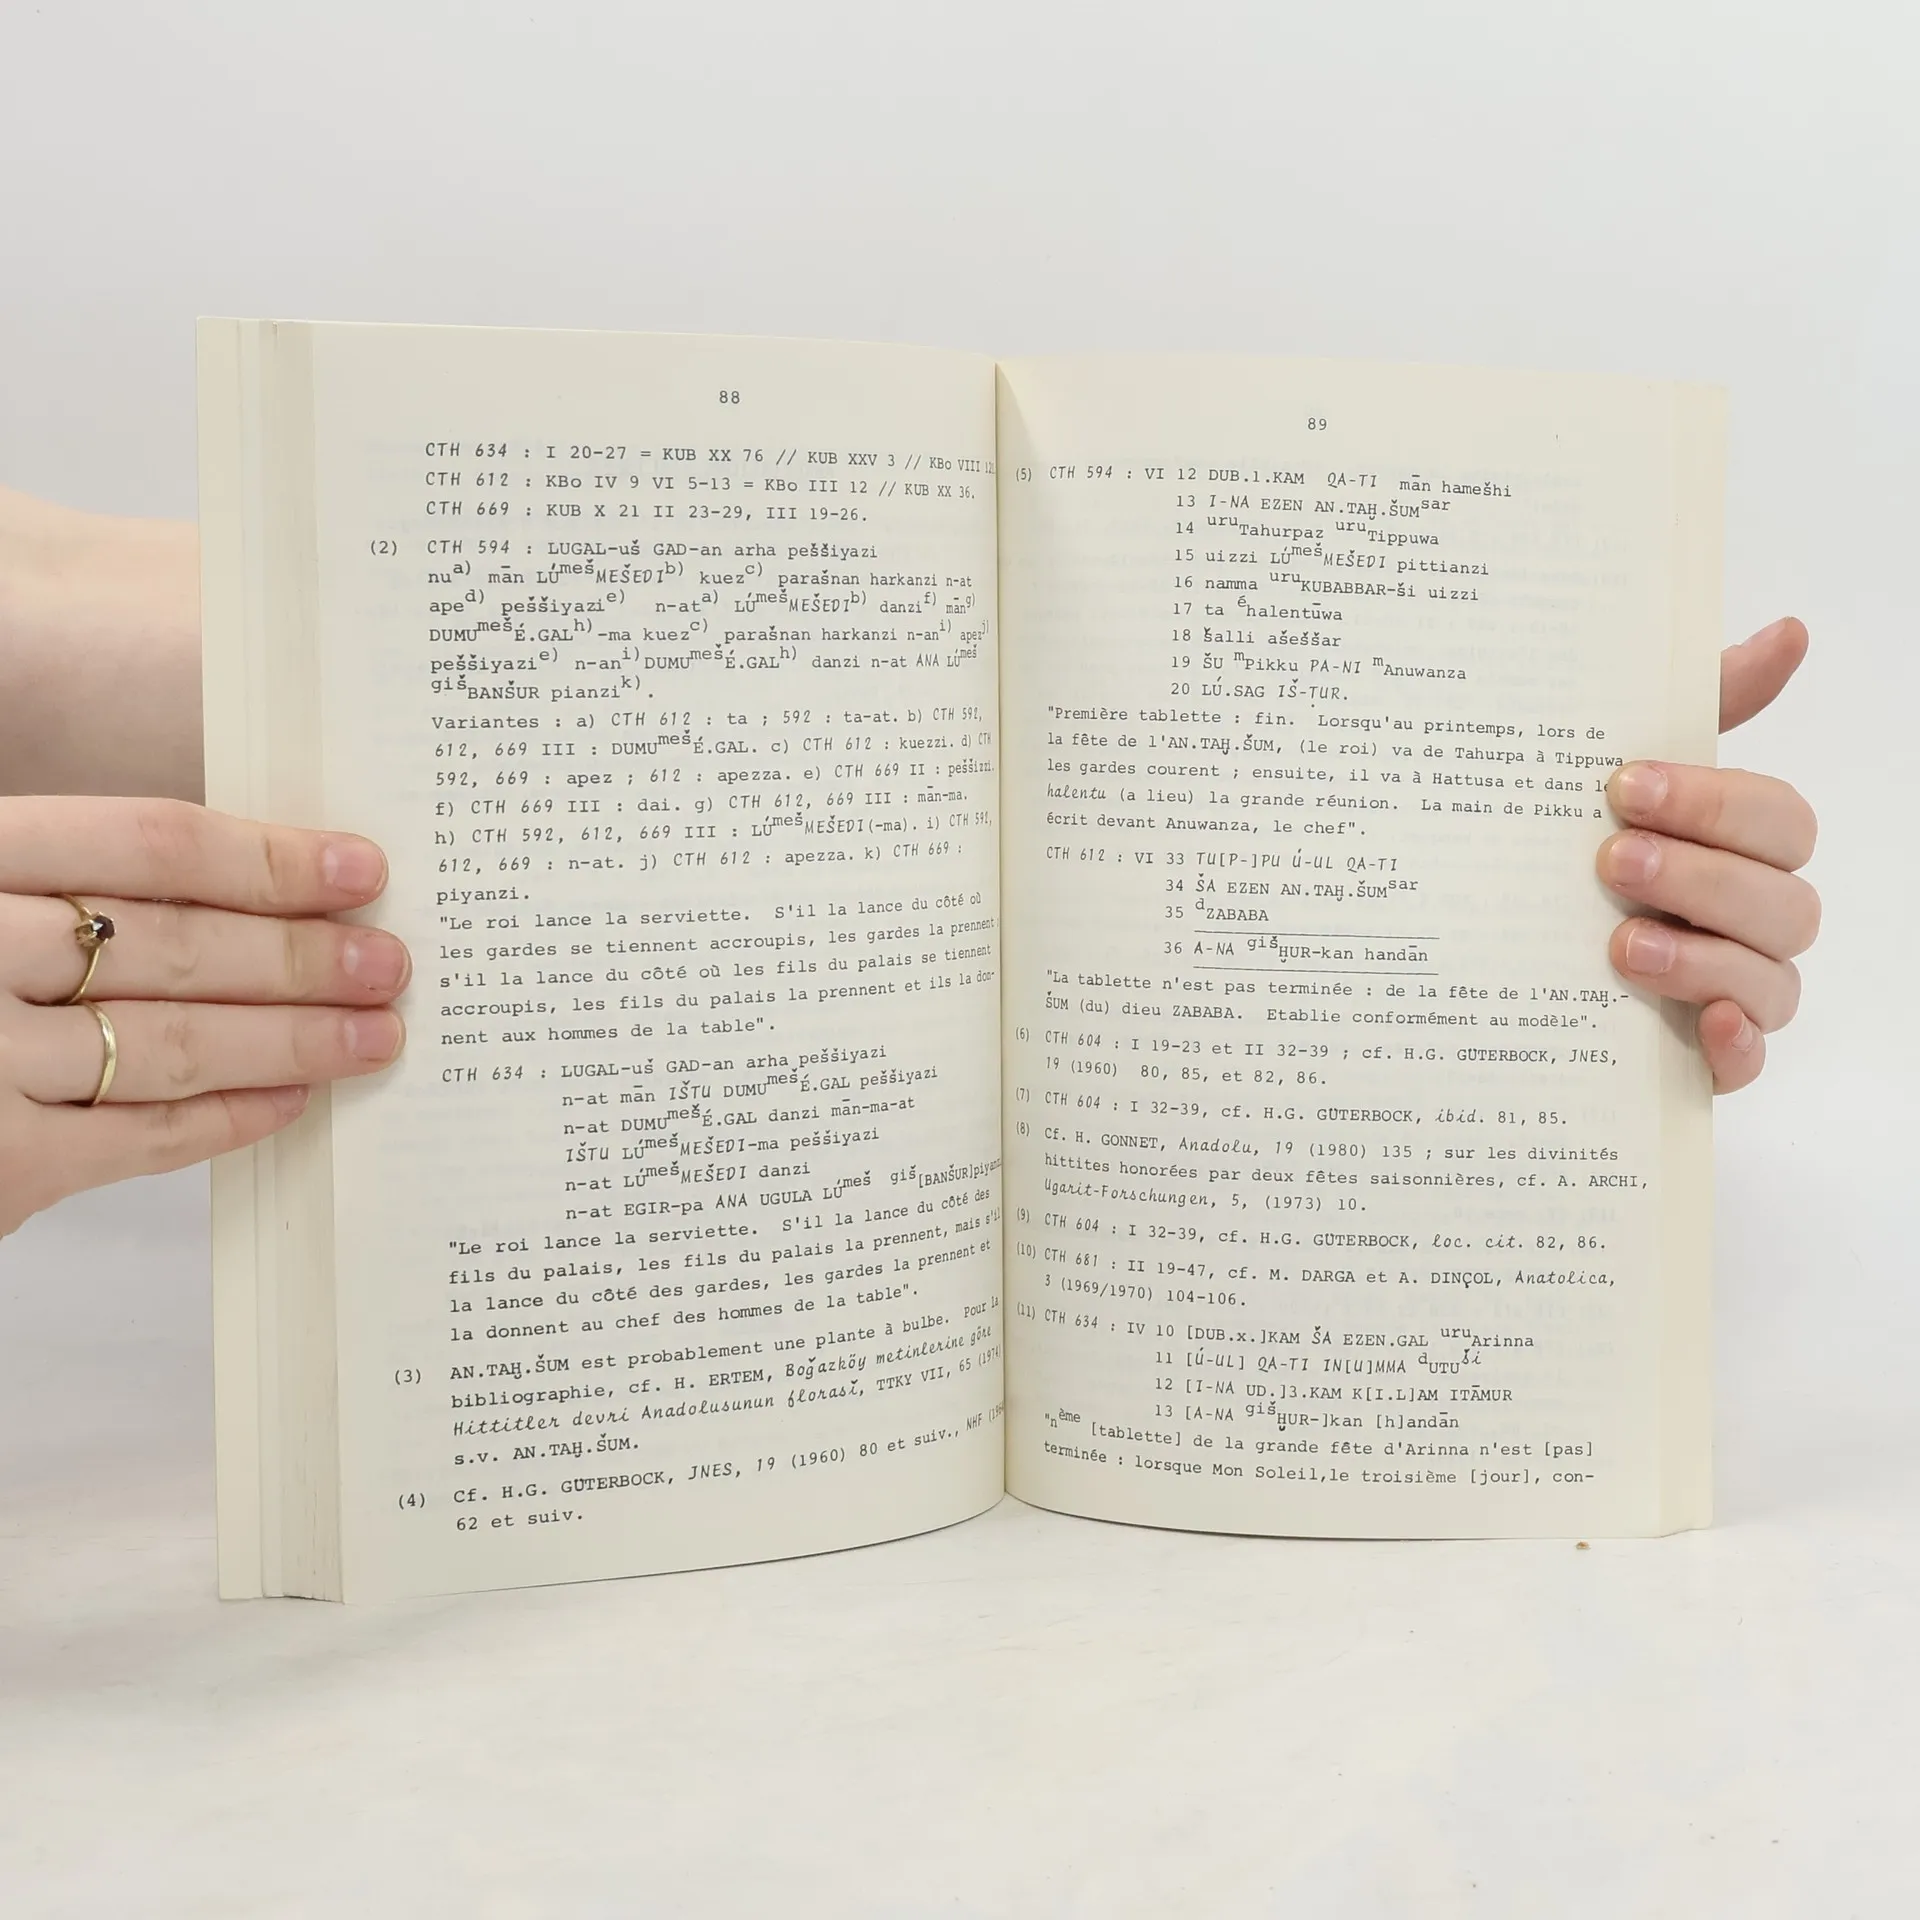 88
CTH 634 : I 20-27 = KUB XX 76 // KUB XXV 3 // KBo VIII
CTH 612 : KBo IV 9 VI 5-13 = KBo III 12 // KUB XX 36.
CTH 669 : KUB X 21 II 23-29, III 19-26.
(2) CTH 594 : LUGAL-uš GAD-an arha peššiyazi
nu a) mān LÚ meš MEŠEDI b) kuez c) parašnan harkanzi n-at
ape d) peššiyazi e) n-at a) LÚ meš MEŠEDI b) danzi f) mān g)
DUMU meš É.GAL h) -ma kuez c) parašnan harkanzi n-an i) apez j)
peššiyazi e) n-an i) DUMU meš É.GAL h) danzi n-at ANA LÚ meš
giš BANŠUR pianzi k) .
Variantes : a) CTH 612 : ta ; 592 : ta-at. b) CTH 592,
612, 669 III : DUMU meš É.GAL. c) CTH 612 : kuezzi. d) CTH
592, 669 : apez ; 612 : apezza. e) CTH 669 II : peššizzi.
f) CTH 669 III : dai. g) CTH 612, 669 III : mān-ma.
h) CTH 592, 612, 669 III : LÚ meš MEŠEDI(-ma). i) CTH 592,
612, 669 : n-at. j) CTH 612 : apezza. k) CTH 669 :
piyanzi.
"Le roi lance la serviette. S'il la lance du côté où
les gardes se tiennent accroupis, les gardes la prennent ;
s'il la lance du côté où les fils du palais se tiennent
accroupis, les fils du palais la prennent et ils la don-
nent aux hommes de la table".
CTH 634 : LUGAL-uš GAD-an arha peššiyazi
n-at mān IŠTU DUMU meš É.GAL peššiyazi
n-at DUMU meš É.GAL danzi mān-ma-at
IŠTU LÚ meš MEŠEDI-ma peššiyazi
n-at LÚ meš MEŠEDI danzi
n-at EGIR-pa ANA UGULA LÚ meš giš [BANŠUR]piyanzi
"Le roi lance la serviette. S'il la lance du côté des
fils du palais, les fils du palais la prennent, mais s'il
la lance du côté des gardes, les gardes la prennent et
la donnent au chef des hommes de la table".
(3) AN.TAḪ.ŠUM est probablement une plante à bulbe. Pour la
bibliographie, cf. H. ERTEM, Boğazköy metinlerine göre
Hittitler devri Anadolusunun florasi, TTKY VII, 65 (1974)
s.v. AN.TAḪ.ŠUM.
(4) Cf. H.G. GÜTERBOCK, JNES, 19 (1960) 80 et suiv., NHF
62 et suiv.
89
(5) CTH 594 : VI 12 DUB.1.KAM QA-TI mān hamešhi
13 I-NA EZEN AN.TAḪ.ŠUM sar
14 uru Tahurpaz uru Tippuwa
15 uizzi LÚ meš MEŠEDI pittianzi
16 namma uru KUBABBAR-ši uizzi
17 ta é halentūwa
18 šalli ašeššar
19 ŠU m Pikku PA-NI m Anuwanza
20 LÚ.SAG IŠ-TUR.
"Première tablette : fin. Lorsqu'au printemps, lors de
la fête de l'AN.TAḪ.ŠUM, (le roi) va de Tahurpa à Tippuwa
les gardes courent ; ensuite, il va à Hattusa et dans le
halentu (a lieu) la grande réunion. La main de Pikku a
écrit devant Anuwanza, le chef".
CTH 612 : VI 33 TU[P-]PU Ú-UL QA-TI
34 ŠA EZEN AN.TAḪ.ŠUM sar
35 d ZABABA
36 A-NA giš ḪUR-kan handān
"La tablette n'est pas terminée : de la fête de l'AN.TAḪ.-
ŠUM (du) dieu ZABABA. Etablie conformément au modèle".
(6) CTH 604 : I 19-23 et II 32-39 ; cf. H.G. GÜTERBOCK, JNES,
19 (1960) 80, 85, et 82, 86.
(7) CTH 604 : I 32-39, cf. H.G. GÜTERBOCK, ibid. 81, 85.
(8) Cf. H. GONNET, Anadolu, 19 (1980) 135 ; sur les divinités
hittites honorées par deux fêtes saisonnières, cf. A. ARCHI,
Ugarit-Forschungen, 5, (1973) 10.
(9) CTH 604 : I 32-39, cf. H.G. GÜTERBOCK, loc. cit. 82, 86.
(10) CTH 681 : II 19-47, cf. M. DARGA et A. DINÇOL, Anatolica,
3 (1969/1970) 104-106.
(11) CTH 634 : IV 10 [DUB.x.]KAM ŠA EZEN.GAL uru Arinna
11 [Ú-UL] QA-TI IN[U]MMA d UTU ši
12 [I-NA UD.]3.KAM K[I.L]AM ITĀMUR
13 [A-NA giš ḪUR-]kan [h]andān
"n ème [tablette] de la grande fête d'Arinna n'est [pas]
terminée : lorsque Mon Soleil,le troisième [jour], con-